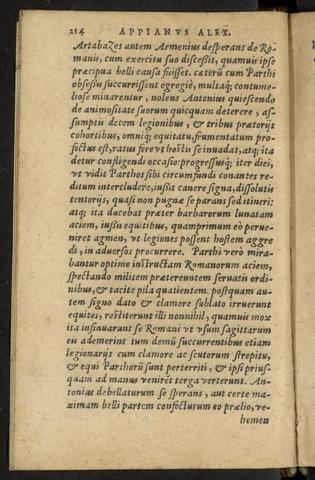 284 APPIANVS ALEX.
Artabazes autem Armenius desperans de Ro-
manis, cum exercitu suo discessit, quamuis ipse
præcipua belli causa fuisset. cæterũ cum Parthi
obsessis succurrissent egregiè, multaq; contume-
liose minarentur, nolens Antonius quiescendo
de animositate suorum quicquam deterere, as-
sumptis decem legionibus, & tribus prætorijs
cohortibus, omniq; equitatu, frumentatum pro-
fectus est, ratus fore vt hostis se inuadat, atq; ita
detur confligendi occasio: progressusq; iter diei,
vt vidit Parthos sibi circumfundi conantes re-
ditum intercludere, iussit canere signa, dissolutis
tentorijs, quasi non pugnæ se parans sed itineri:
atq; ita ducebat præter barbarorum lunatam
aciem, iussis equitibus, quamprimum eò perue-
niret agmen, vt legiones possent hostem aggre
di, in aduersos procurrere. Parthi verò mira-
bantur optime instructam Romanorum aciem,
spectando militem prætereuntem seruatis ordi-
nibus, & tacite pila quatientem. postquam au-
tem signo dato & clamore sublato irruerunt
equites, restiterunt illi nonnihil, quamuis mox
ita insinuarant se Romani vt vsum sagittarum
eis ademerint tum demũ succurrentibus etiam
legionarijs cum clamore ac scutorum strepitu,
& equi Parthorũ sunt perterriti, & ipsi prius-
quam ad manus veniret terga verterunt. An-
tonius debellaturum se sperans, aut certe ma-
ximam belli partem confecturum eo prælio, ve-
hemen